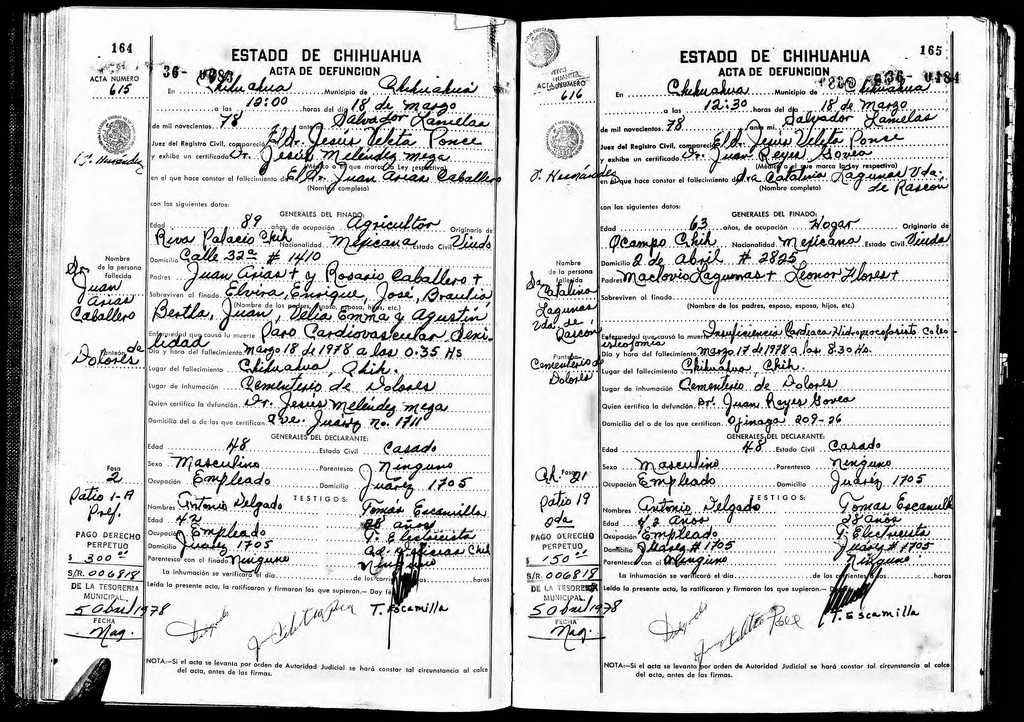 164
ESTADO DE CHIHUAHUA
ACTA DE DEFUNCION
ACTA NUMERO
615
36-
En Chihuahua Municipio de Chihuahua
a las 12:00 horas del día 18 de Marzo
de mil novecientos 78 Salvador Lamelas
Juez del Registro Civil, compareció El Sr. Jesús Veleta Ponse
y exhibe un certificado Dr. Jesús Meléndez Meza
(Médico o el que marca la Ley respectiva)
en el que hace constar el fallecimiento de El Sr. Juan Arias Caballero
(Nombre completo)
J. Hernández
con los siguientes datos:
GENERALES DEL FINADO:
Edad 89 años, de ocupación Agricultor Originario de
Riva Palacio Chih Nacionalidad Mexicana Estado Civil Viudo
Domicilio Calle 32a # 1410
Padres Juan Arias + y Rosario Caballero +
Sobreviven al finado: Elvira, Enrique, José, Braulia,
(Nombre de los padres, esposa, esposo, hijos, etc.)
Bertha, Juan, Velia Emma y Agustín
Nombre
de la persona
fallecida
Sr.
Juan
Arias
Caballero
Enfermedad que causó la muerte Paro Cardiovascular Seni-
lidad
Panteón de
Dolores
Día y hora del fallecimiento Marzo 18 de 1978 a las 0.35 Hs
Lugar del fallecimiento Chihuahua, Chih.
Lugar de inhumación Cementerio de Dolores
Quien certifica la defunción Dr. Jesús Meléndez Meza
Domicilio del o de los que certifican Ave. Juárez No. 1711
GENERALES DEL DECLARANTE:
Edad 48 Estado Civil Casado
Sexo Masculino Parentesco Ninguno
Ocupación Empleado Domicilio Juárez 1705
TESTIGOS:
Nombres Antonio Delgado Tomás Escamilla
Edad 42 28 años
Ocupación Empleado T. Electricista
Domicilio Juárez 1705
Parentesco con el finado Ninguno Ninguno
La inhumación se verificará el día de los corrientes a las horas
Leída la presente acta, la ratificaron y firmaron los que supieron.— Doy fe
Fosa
2
Patio 1-A
Pref.
PAGO DERECHO
PERPETUO
$ 300 00
S/R. 006818
DE LA TESORERIA
MUNICIPAL
5 Abril 1978
FECHA
Maq.
Delgado
T. Escamilla
NOTA:—Si el acta se levanta por orden de Autoridad Judicial se hará constar tal circunstancia al calce
del acta, antes de las firmas.
165
ESTADO DE CHIHUAHUA
ACTA DE DEFUNCION
ACTA NUMERO
616
36- 0484
En Chihuahua Municipio de Chihuahua
a las 12:30 horas del día 18 de Marzo
de mil novecientos 78 ante mí, Salvador Lamelas
Juez del Registro Civil, compareció El Sr. Jesús Veleta Ponse
y exhibe un certificado Dr. Juan Reyes Govea
(Médico o el que marca la Ley respectiva)
en el que hace constar el fallecimiento de Sra Catalina Lagunas Vda.
(Nombre completo) de Rascon
J. Hernández
con los siguientes datos:
GENERALES DEL FINADO:
Edad 63 años, de ocupación Hogar Originario de
Ocampo Chih. Nacionalidad Mexicana Estado Civil Viuda
Domicilio 2 de Abril # 2825
Padres Maclovio Lagunas + Leonor Flores +
Sobreviven al finado:
(Nombre de los padres, esposa, esposo, hijos, etc.)
Nombre
de la persona
fallecida
Sa
Catalina
Lagunas
Vda. de
Rascon
Enfermedad que causó la muerte Insuficiencia Cardiaca
Panteón
Cementerio de
Dolores
Día y hora del fallecimiento Marzo 17 de 1978 a las 8.30 Hs.
Lugar del fallecimiento Chihuahua, Chih.
Lugar de inhumación Cementerio de Dolores
Quien certifica la defunción Dr. Juan Reyes Govea
Domicilio del o de los que certifican Ojinaga 209-26
GENERALES DEL DECLARANTE:
Edad 48 Estado Civil Casado
Sexo Masculino Parentesco Ninguno
Ocupación Empleado Domicilio Juárez 1705
TESTIGOS:
Nombres Antonio Delgado Tomas Escamilla
Edad 42 años 28 años
Ocupación Empleado T. Electricista
Domicilio Juárez # 1705 Juárez # 1705
Parentesco con el finado Ninguno Ninguno
La inhumación se verificará el día de los corrientes a las horas
Leída la presente acta, la ratificaron y firmaron los que supieron.— Doy fe
Fosa 21
Patio 19
2da
PAGO DERECHO
PERPETUO
$ 150 00
S/R. 006818
DE LA TESORERIA
MUNICIPAL
5 Abril 1978
FECHA
Maq.
Delgado
T. Escamilla
NOTA:—Si el acta se levanta por orden de Autoridad Judicial se hará constar tal circunstancia al calce
del acta, antes de las firmas.